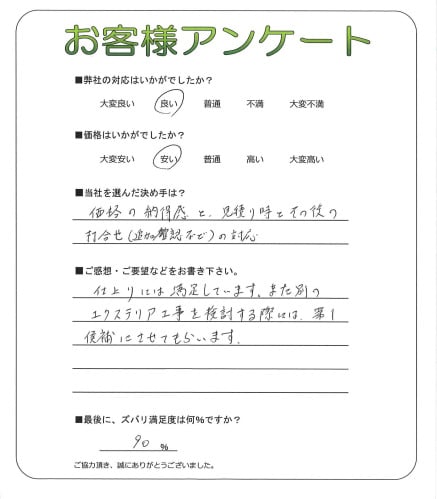 お客様アンケート
■弊社の対応はいかがでしたか？
大変良い 良い 普通 不満 大変不満
■価格はいかがでしたか？
大変安い 安い 普通 高い 大変高い
■当社を選んだ決め手は？
価格の納得感と、見積り時とその後の
打合せ(追加確認など)の対応
■ご感想・ご要望などをお書き下さい。
仕上りには満足しています。また別の
エクステリア工事を検討する際には、第1
候補にさせてもらいます。
■最後に、ズバリ満足度は何％ですか？
90 %
ご協力頂き、誠にありがとうございました。